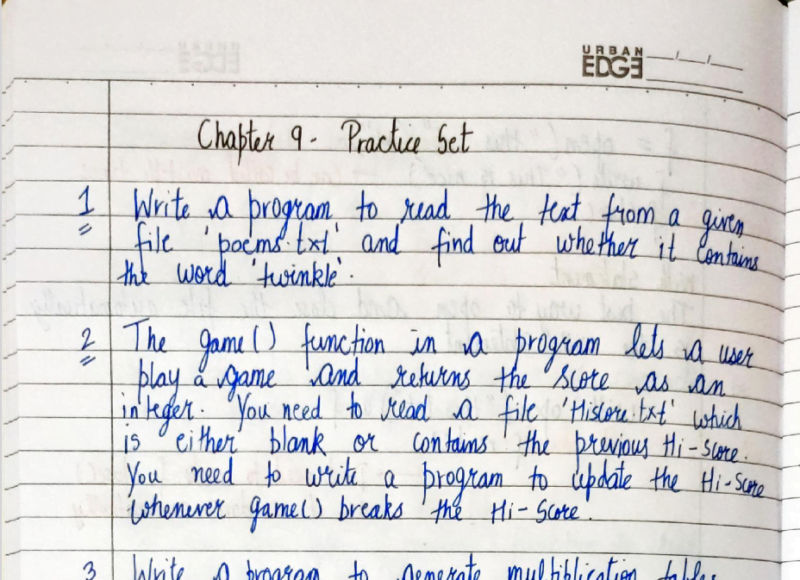 URBAN
EDGE
Chapter 9 - Practice Set
1 Write a program to read the text from a given
file 'poems.txt' and find out whether it contains
the word 'twinkle'.
2 The game() function in a program lets a user
play a game and returns the score as an
integer. You need to read a file 'Hiscore.txt' which
is either blank or contains the previous Hi-Score.
You need to write a program to update the Hi-Score
whenever game() breaks the Hi-Score.
3 Write a program to generate multiplication tables